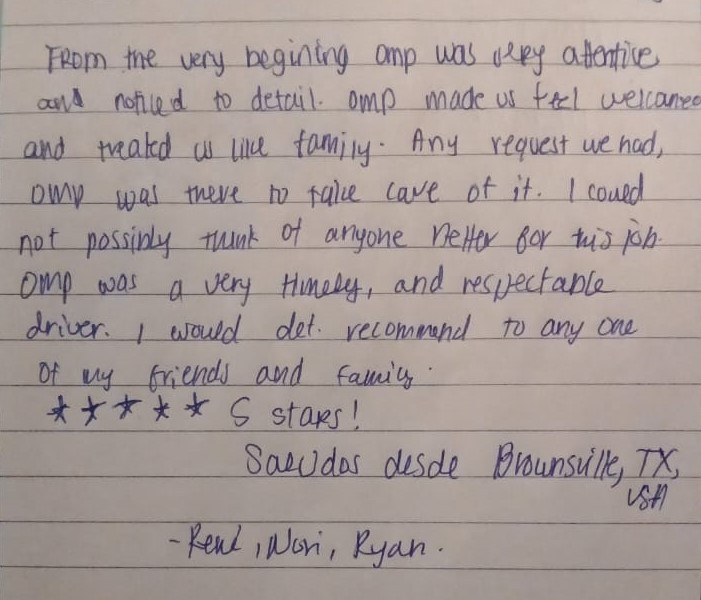 From the very begining Omp was very attentive
and noticed to detail. Omp made us feel welcomed
and treated us like family. Any request we had,
Omp was there to take care of it. I could
not possibly think of anyone better for this job.
Omp was a very timely, and respectable
driver. I would def. recommend to any one
of my friends and family.
★ ★ ★ ★ ★ 5 stars!
Saludos desde Brownsville, TX,
USA
- René, Nori, Ryan.